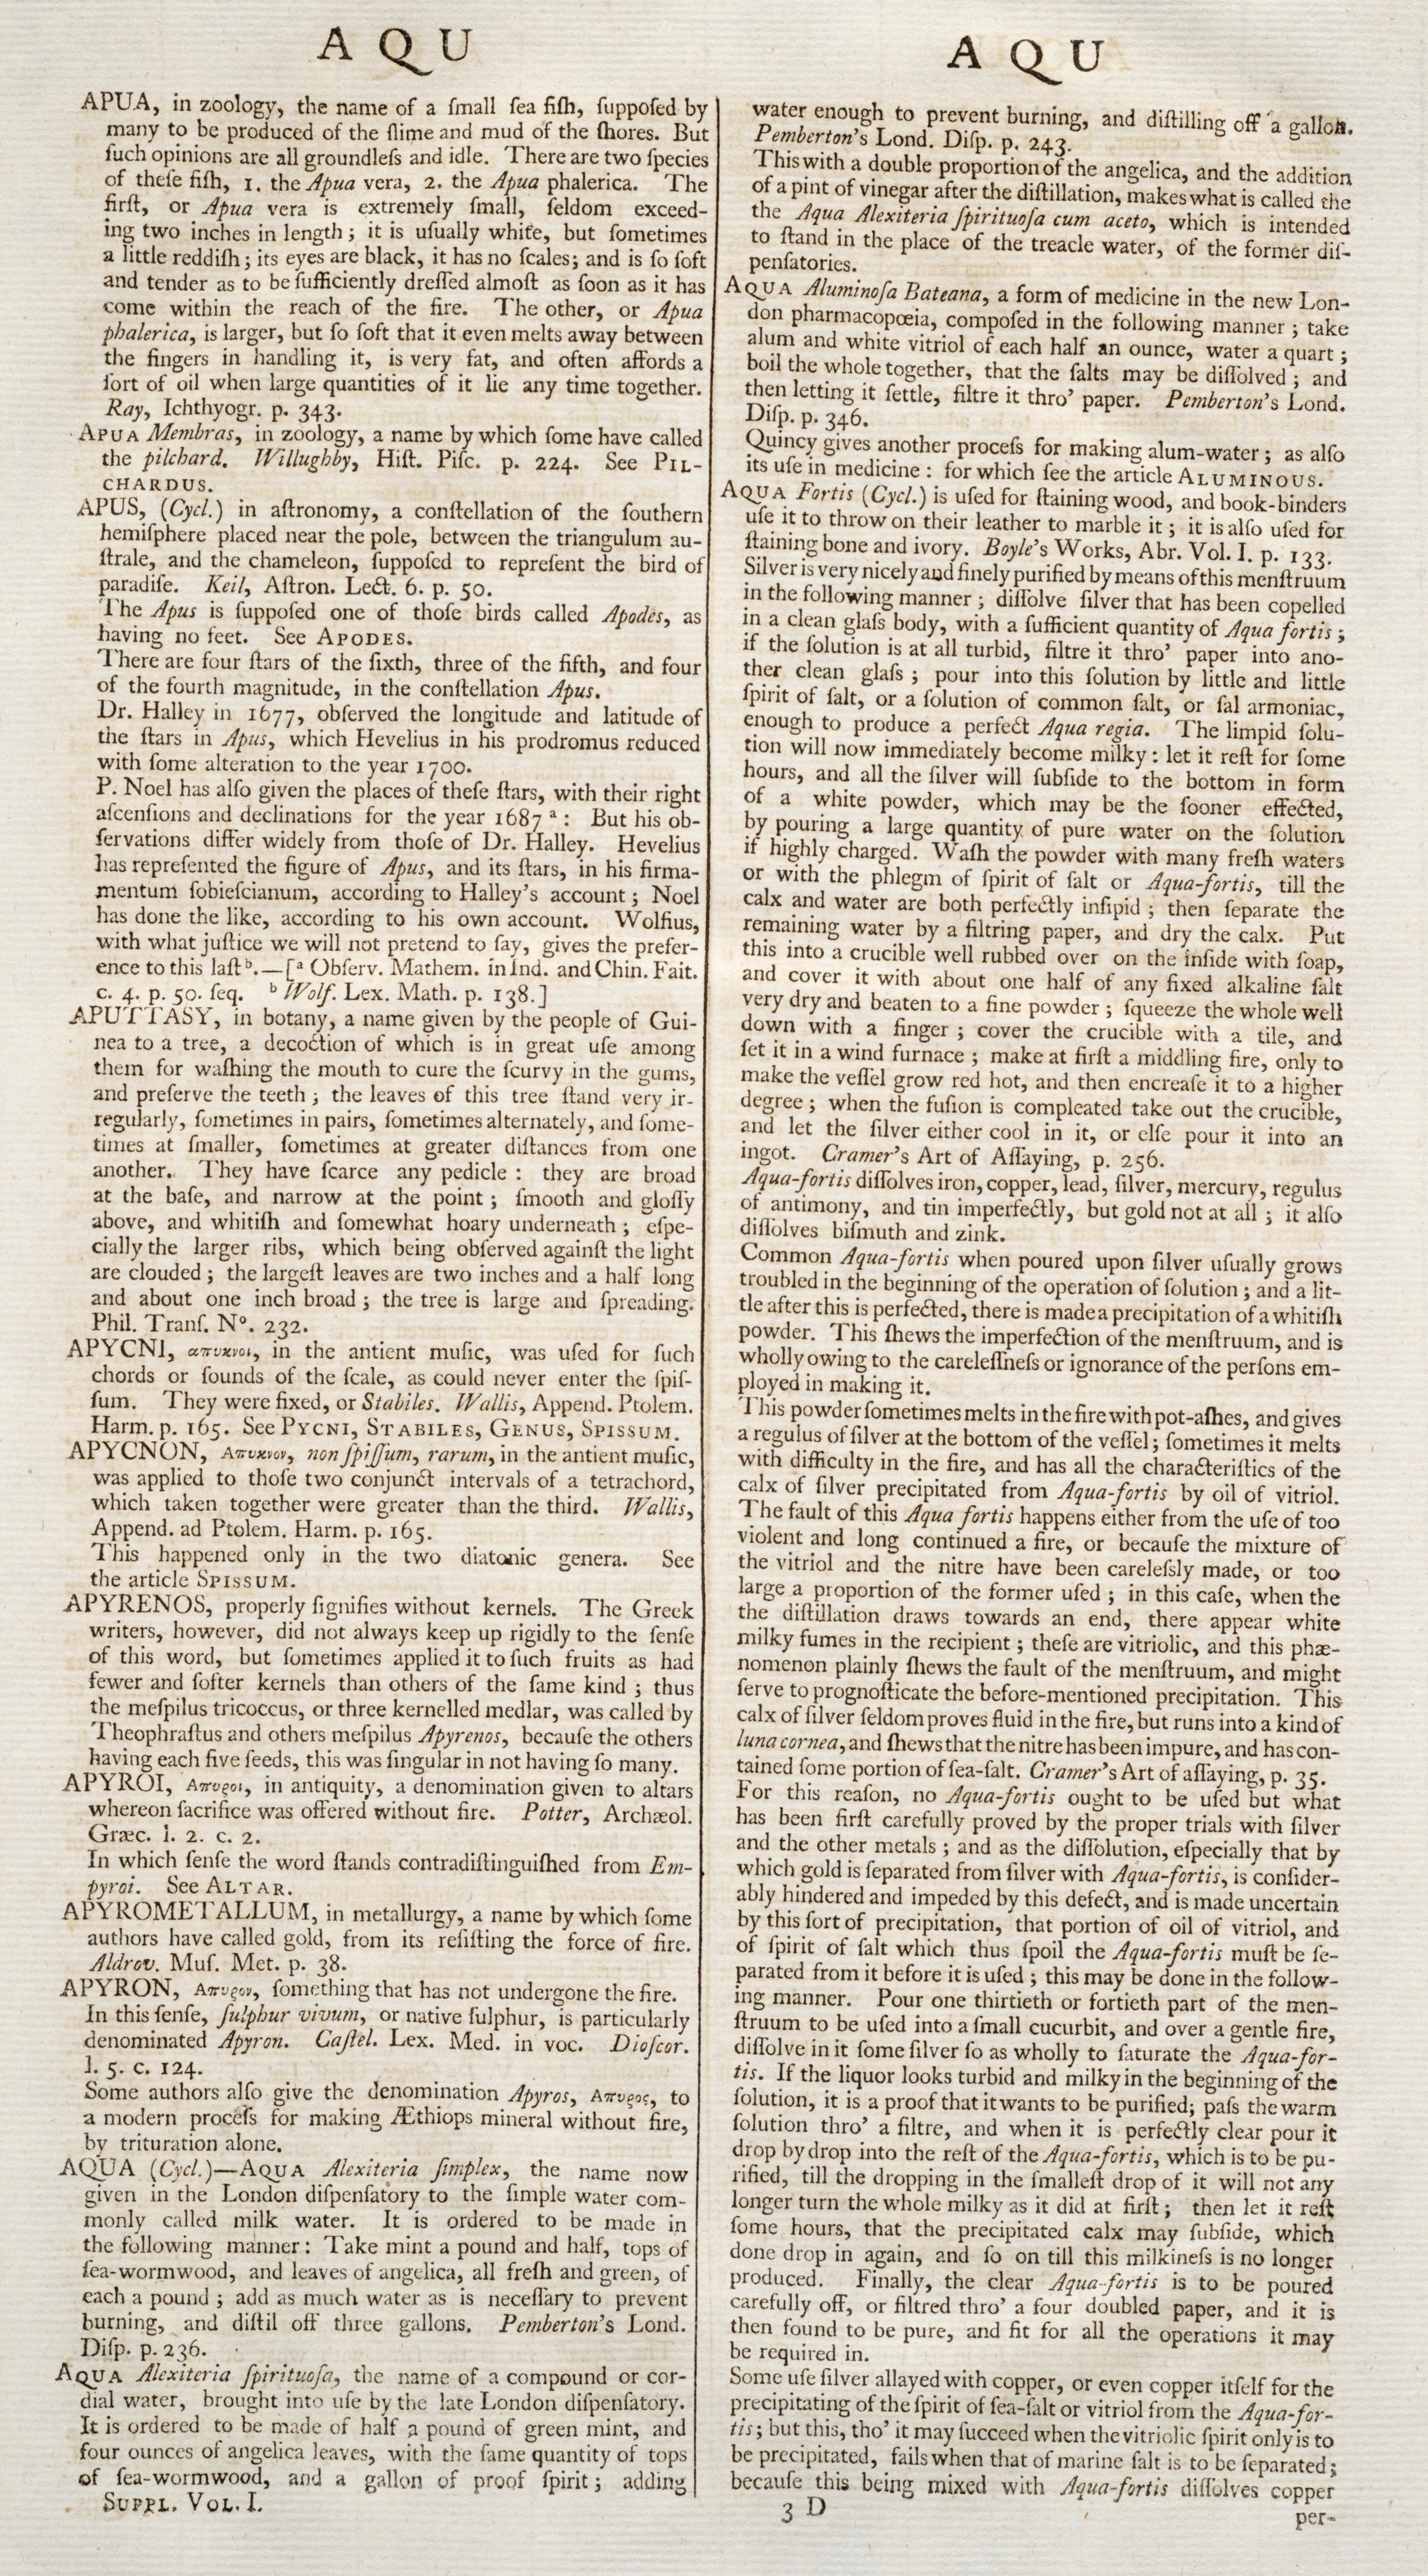 A Q U
APUA, in zoology, the name of a ſmall ſea fiſh, ſuppoſed by
many to be produced of the ſlime and mud of the ſhores. But
ſuch opinions are all groundleſs and idle. There are two ſpecies
of theſe fiſh, 1. the Apua vera, 2. the Apua phalerica. The
firſt, or Apua vera is extremely ſmall, ſeldom exceed-
ing two inches in length; it is uſually white, but ſometimes
a little reddiſh; its eyes are black, it has no ſcales; and is ſo ſoft
and tender as to be ſufficiently dreſſed almoſt as ſoon as it has
come within the reach of the fire. The other, or Apua
phalerica, is larger, but ſo ſoft that it even melts away between
the fingers in handling it, is very fat, and often affords a
ſort of oil when large quantities of it lie any time together.
Ray, Ichthyogr. p. 343.
APUA Membras, in zoology, a name by which ſome have called
the pilchard. Willughby, Hiſt. Piſc. p. 224. See PIL-
CHARDUS.
APUS, (Cycl.) in aſtronomy, a conſtellation of the ſouthern
hemiſphere placed near the pole, between the triangulum au-
ſtrale, and the chameleon, ſuppoſed to repreſent the bird of
paradiſe. Keil, Aſtron. Lect. 6. p. 50.
The Apus is ſuppoſed one of thoſe birds called Apodes, as
having no feet. See APODES.
There are four ſtars of the ſixth, three of the fifth, and four
of the fourth magnitude, in the conſtellation Apus.
Dr. Halley in 1677, obſerved the longitude and latitude of
the ſtars in Apus, which Hevelius in his prodromus reduced
with ſome alteration to the year 1700.
P. Noel has alſo given the places of theſe ſtars, with their right
aſcenſions and declinations for the year 1687 ª: But his ob-
ſervations differ widely from thoſe of Dr. Halley. Hevelius
has repreſented the figure of Apus, and its ſtars, in his firma-
mentum ſobieſcianum, according to Halley's account; Noel
has done the like, according to his own account. Wolfius,
with what juſtice we will not pretend to ſay, gives the prefer-
ence to this laſt ᵇ.—[ª Obſerv. Mathem. in Ind. and Chin. Fait.
c. 4. p. 50. ſeq. ᵇ Wolf. Lex. Math. p. 138.]
APUTTASY, in botany, a name given by the people of Gui-
nea to a tree, a decoction of which is in great uſe among
them for waſhing the mouth to cure the ſcurvy in the gums,
and preſerve the teeth; the leaves of this tree ſtand very ir-
regularly, ſometimes in pairs, ſometimes alternately, and ſome-
times at ſmaller, ſometimes at greater diſtances from one
another. They have ſcarce any pedicle: they are broad
at the baſe, and narrow at the point; ſmooth and gloſſy
above, and whitiſh and ſomewhat hoary underneath; eſpe-
cially the larger ribs, which being obſerved againſt the light
are clouded; the largeſt leaves are two inches and a half long
and about one inch broad; the tree is large and ſpreading.
Phil. Tranſ. Nº. 232.
APYCNI, απυκνοι, in the antient muſic, was uſed for ſuch
chords or ſounds of the ſcale, as could never enter the ſpiſ-
ſum. They were fixed, or Stabiles. Wallis, Append. Ptolem.
Harm. p. 165. See PYCNI, STABILES, GENUS, SPISSUM.
APYCNON, Απυκνον, non ſpiſſum, rarum, in the antient muſic,
was applied to thoſe two conjunct intervals of a tetrachord,
which taken together were greater than the third. Wallis,
Append. ad Ptolem. Harm. p. 165.
This happened only in the two diatonic genera. See
the article SPISSUM.
APYRENOS, properly ſignifies without kernels. The Greek
writers, however, did not always keep up rigidly to the ſenſe
of this word, but ſometimes applied it to ſuch fruits as had
fewer and ſofter kernels than others of the ſame kind; thus
the meſpilus tricoccus, or three kernelled medlar, was called by
Theophraſtus and others meſpilus Apyrenos, becauſe the others
having each five ſeeds, this was ſingular in not having ſo many.
APYROI, Απυροι, in antiquity, a denomination given to altars
whereon ſacrifice was offered without fire. Potter, Archæol.
Græc. l. 2. c. 2.
In which ſenſe the word ſtands contradiſtinguiſhed from Em-
pyroi. See ALTAR.
APYROMETALLUM, in metallurgy, a name by which ſome
authors have called gold, from its reſiſting the force of fire.
Aldrov. Muſ. Met. p. 38.
APYRON, Απυρον, ſomething that has not undergone the fire.
In this ſenſe, ſulphur vivum, or native ſulphur, is particularly
denominated Apyron. Caſtel. Lex. Med. in voc. Dioſcor.
l. 5. c. 124.
Some authors alſo give the denomination Apyros, Απυρος, to
a modern proceſs for making Æthiops mineral without fire,
by trituration alone.
AQUA (Cycl.)—AQUA Alexiteria ſimplex, the name now
given in the London diſpenſatory to the ſimple water com-
monly called milk water. It is ordered to be made in
the following manner: Take mint a pound and half, tops of
ſea-wormwood, and leaves of angelica, all freſh and green, of
each a pound; add as much water as is neceſſary to prevent
burning, and diſtil off three gallons. Pemberton's Lond.
Diſp. p. 236.
AQUA Alexiteria ſpirituoſa, the name of a compound or cor-
dial water, brought into uſe by the late London diſpenſatory.
It is ordered to be made of half a pound of green mint, and
four ounces of angelica leaves, with the ſame quantity of tops
of ſea-wormwood, and a gallon of proof ſpirit; adding
SUPPL. VOL. I.
A Q U
water enough to prevent burning, and diſtilling off a gallon.
Pemberton's Lond. Diſp. p. 243.
This with a double proportion of the angelica, and the addition
of a pint of vinegar after the diſtillation, makes what is called the
the Aqua Alexiteria ſpirituoſa cum aceto, which is intended
to ſtand in the place of the treacle water, of the former diſ-
penſatories.
AQUA Aluminoſa Bateana, a form of medicine in the new Lon-
don pharmacopœia, compoſed in the following manner; take
alum and white vitriol of each half an ounce, water a quart;
boil the whole together, that the ſalts may be diſſolved; and
then letting it ſettle, filtre it thro' paper. Pemberton's Lond.
Diſp. p. 346.
Quincy gives another proceſs for making alum-water; as alſo
its uſe in medicine: for which ſee the article ALUMINOUS.
AQUA Fortis (Cycl.) is uſed for ſtaining wood, and book-binders
uſe it to throw on their leather to marble it; it is alſo uſed for
ſtaining bone and ivory. Boyle's Works, Abr. Vol. I. p. 133.
Silver is very nicely and finely purified by means of this menſtruum
in the following manner; diſſolve ſilver that has been copelled
in a clean glaſs body, with a ſufficient quantity of Aqua fortis;
if the ſolution is at all turbid, filtre it thro' paper into ano-
ther clean glaſs; pour into this ſolution by little and little
ſpirit of ſalt, or a ſolution of common ſalt, or ſal armoniac,
enough to produce a perfect Aqua regia. The limpid ſolu-
tion will now immediately become milky: let it reſt for ſome
hours, and all the ſilver will ſubſide to the bottom in form
of a white powder, which may be the ſooner effected,
by pouring a large quantity of pure water on the ſolution
if highly charged. Waſh the powder with many freſh waters
or with the phlegm of ſpirit of ſalt or Aqua-fortis, till the
calx and water are both perfectly inſipid; then ſeparate the
remaining water by a filtring paper, and dry the calx. Put
this into a crucible well rubbed over on the inſide with ſoap,
and cover it with about one half of any fixed alkaline ſalt
very dry and beaten to a fine powder; ſqueeze the whole well
down with a finger; cover the crucible with a tile, and
ſet it in a wind furnace; make at firſt a middling fire, only to
make the veſſel grow red hot, and then encreaſe it to a higher
degree; when the fuſion is compleated take out the crucible,
and let the ſilver either cool in it, or elſe pour it into an
ingot. Cramer's Art of Aſſaying, p. 256.
Aqua-fortis diſſolves iron, copper, lead, ſilver, mercury, regulus
of antimony, and tin imperfectly, but gold not at all; it alſo
diſſolves biſmuth and zink.
Common Aqua-fortis when poured upon ſilver uſually grows
troubled in the beginning of the operation of ſolution; and a lit-
tle after this is perfected, there is made a precipitation of a whitiſh
powder. This ſhews the imperfection of the menſtruum, and is
wholly owing to the careleſſneſs or ignorance of the perſons em-
ployed in making it.
This powder ſometimes melts in the fire with pot-aſhes, and gives
a regulus of ſilver at the bottom of the veſſel; ſometimes it melts
with difficulty in the fire, and has all the characteriſtics of the
calx of ſilver precipitated from Aqua-fortis by oil of vitriol.
The fault of this Aqua fortis happens either from the uſe of too
violent and long continued a fire, or becauſe the mixture of
the vitriol and the nitre have been careleſsly made, or too
large a proportion of the former uſed; in this caſe, when the
the diſtillation draws towards an end, there appear white
milky fumes in the recipient; theſe are vitriolic, and this phæ-
nomenon plainly ſhews the fault of the menſtruum, and might
ſerve to prognoſticate the before-mentioned precipitation. This
calx of ſilver ſeldom proves fluid in the fire, but runs into a kind of
luna cornea, and ſhews that the nitre has been impure, and has con-
tained ſome portion of ſea-ſalt. Cramer's Art of aſſaying, p. 35.
For this reaſon, no Aqua-fortis ought to be uſed but what
has been firſt carefully proved by the proper trials with ſilver
and the other metals; and as the diſſolution, eſpecially that by
which gold is ſeparated from ſilver with Aqua-fortis, is conſider-
ably hindered and impeded by this defect, and is made uncertain
by this ſort of precipitation, that portion of oil of vitriol, and
of ſpirit of ſalt which thus ſpoil the Aqua-fortis muſt be ſe-
parated from it before it is uſed; this may be done in the follow-
ing manner. Pour one thirtieth or fortieth part of the men-
ſtruum to be uſed into a ſmall cucurbit, and over a gentle fire,
diſſolve in it ſome ſilver ſo as wholly to ſaturate the Aqua-for-
tis. If the liquor looks turbid and milky in the beginning of the
ſolution, it is a proof that it wants to be purified; paſs the warm
ſolution thro' a filtre, and when it is perfectly clear pour it
drop by drop into the reſt of the Aqua-fortis, which is to be pu-
rified, till the dropping in the ſmalleſt drop of it will not any
longer turn the whole milky as it did at firſt; then let it reſt
ſome hours, that the precipitated calx may ſubſide, which
done drop in again, and ſo on till this milkineſs is no longer
produced. Finally, the clear Aqua-fortis is to be poured
carefully off, or filtred thro' a four doubled paper, and it is
then found to be pure, and fit for all the operations it may
be required in.
Some uſe ſilver allayed with copper, or even copper itſelf for the
precipitating of the ſpirit of ſea-ſalt or vitriol from the Aqua-for-
tis; but this, tho' it may ſucceed when the vitriolic ſpirit only is to
be precipitated, fails when that of marine ſalt is to be ſeparated;
becauſe this being mixed with Aqua-fortis diſſolves copper
3 D
per-